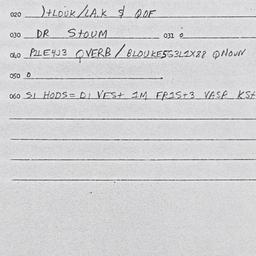 020 )+LOUK/LA.K $ QOF
030 DR STOUM 031 0
040 PZLE4J3 QVERB/BLOUKE5G3L2X88 QNOUN
050 0
060 SI HODS= DI VES+ IM FRIS+3 VASF KS+